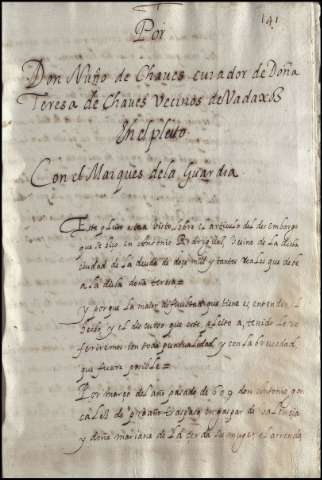 141
Por
Don Nuño de Chaues curador de Doña
Teresa de Chaues Vecinos de Vadaxoz
En el pleito
Con el Marques de la Guardia
Este pleito esta visto sobre el articulo del desembargo
que se hizo en Antonio Rodriguez vecino de la dicha
ciudad de la deuda de doze mill y tantos reales que debe
a la dicha doña teresa
y porque la maior dificultad que tiene es entender el
hecho y el discurso que este pleito a tenido lo re
feriremos con toda puntualidad y con la breuedad
que fuere posible
Por março del año pasado de 609 don antonio gon
de la cerda su muger